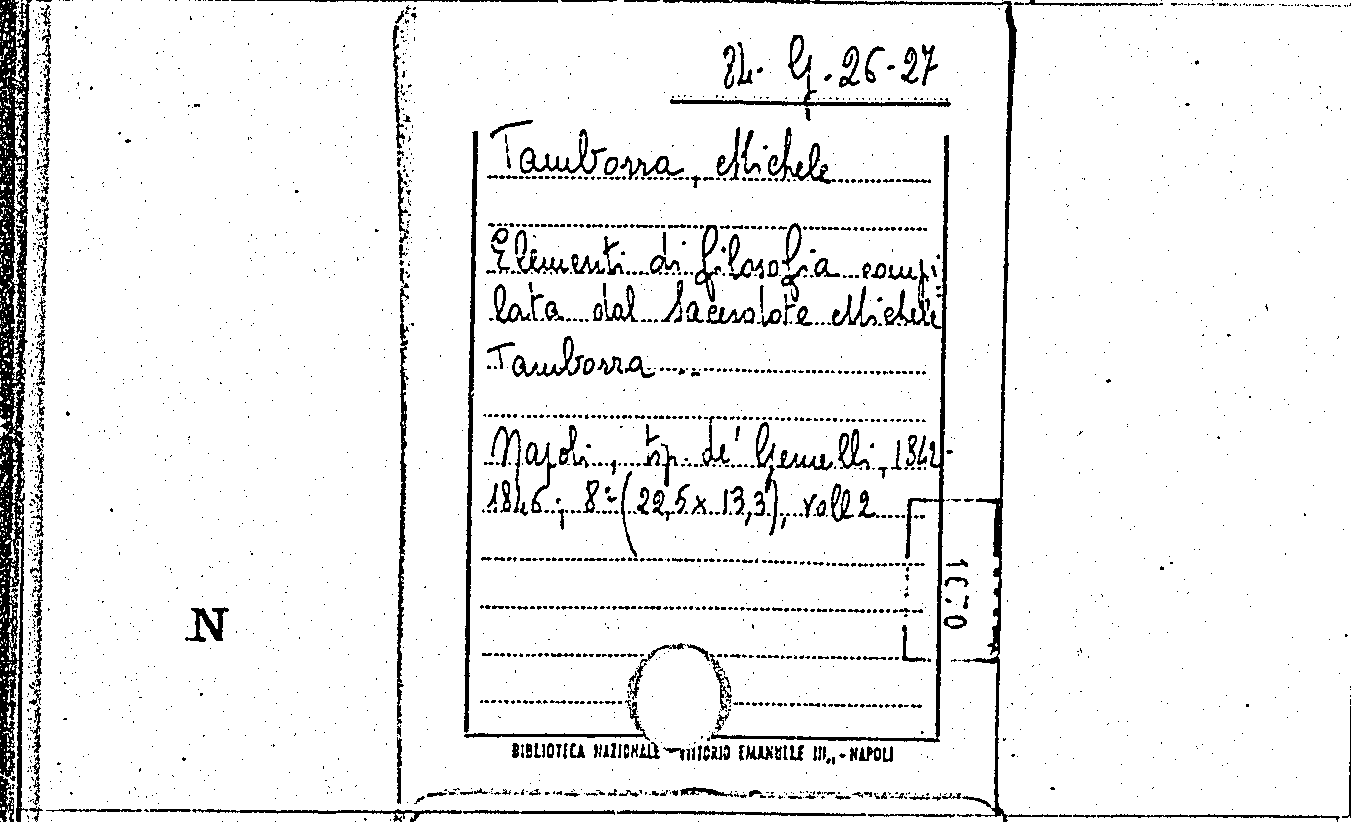 84. G. 26-27
Tamborra, Michele
Elementi di filosofia compi
lata dal Sacerdote Michele
Tamborra...
Napoli, tip. de' Gemelli, 1842-
1846; 8° (22,5 x 13,3), voll 2
N
BIBLIOTECA NAZIONALE VITTORIO EMANUELE III, - NAPOLI